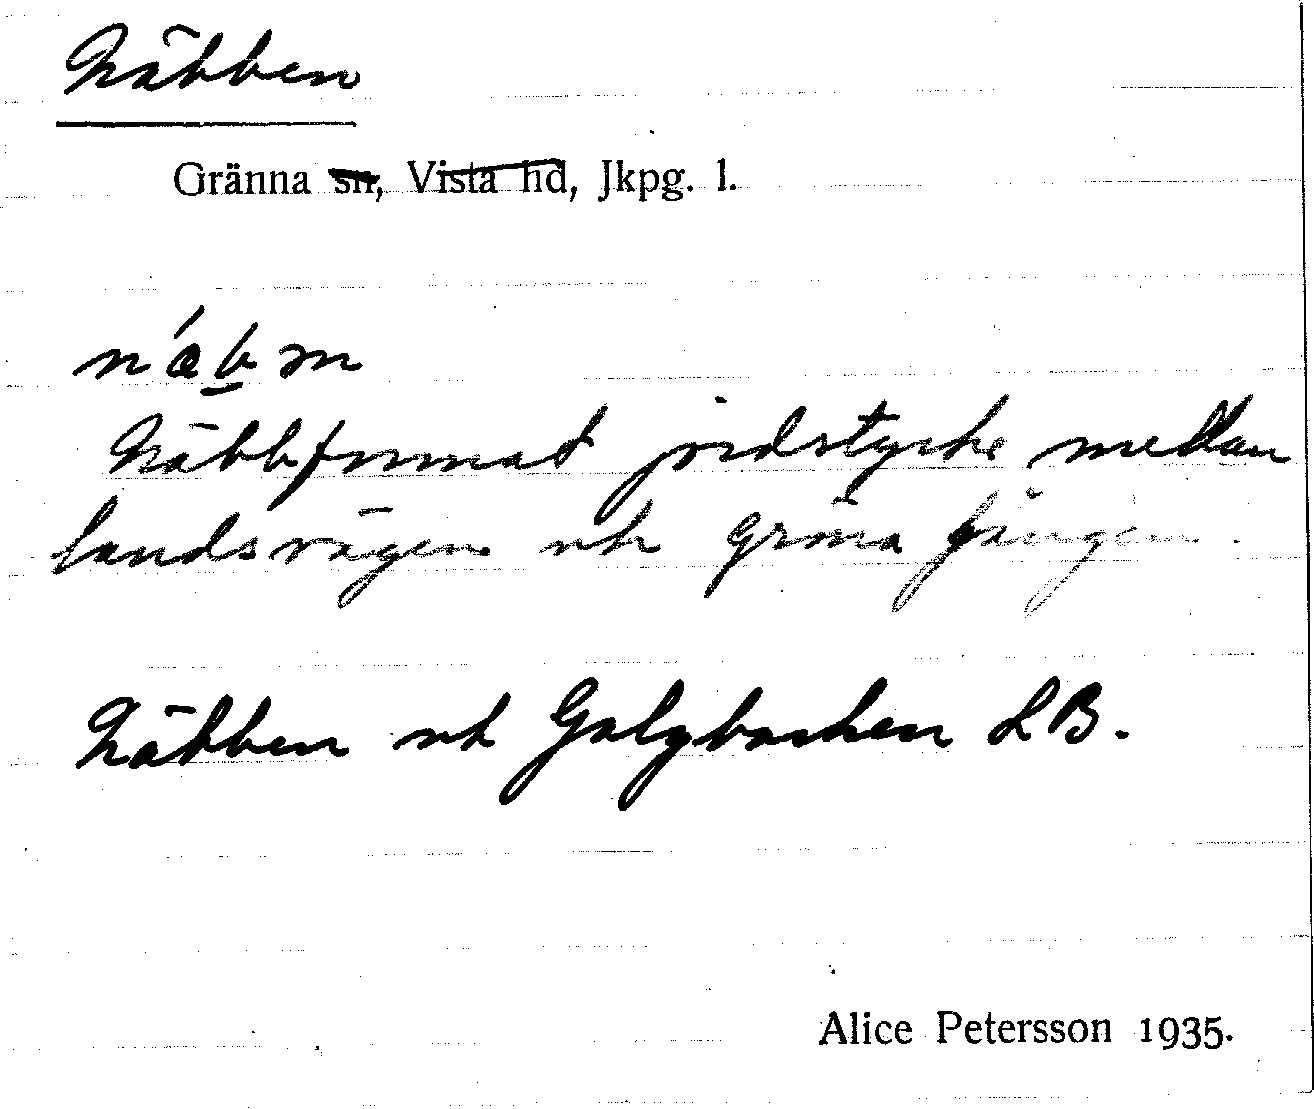 Näbben
Gränna sn, Vista hd, Jkpg. l.
näbm
Näbbformat jordstycke mellan
landsvägen och Gröna gången.
Näbben och Galgbacken LB.
Alice Petersson 1935.